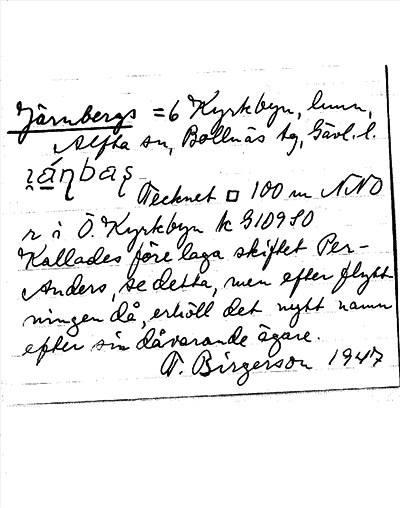 Järnbergs = 6 Kyrkbyn, hmn,
Alfta sn, Bollnäs tg, Gävl. l.
i̯ä́ɳbaʂ
Tecknet □ 100 m NNO
r i Ö. Kyrkbyn k G10980
Kallades före laga skiftet Per-
Anders, se detta, men efter flytt-
ningen då, erhöll det nytt namn
efter sin dåvarande ägare.
T. Birgerson 1947